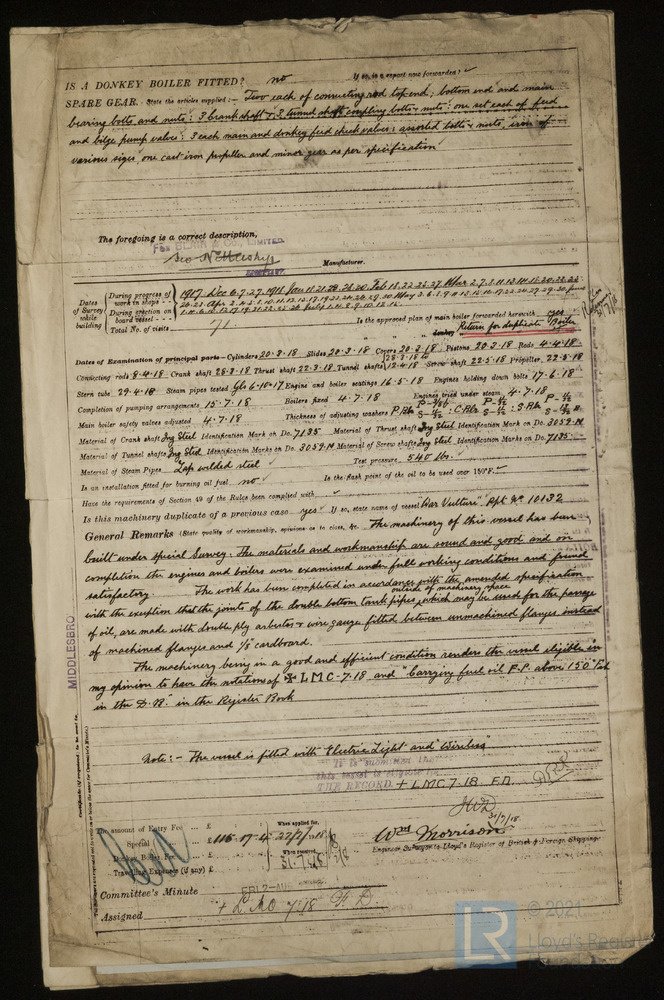 IS A DONKEY BOILER FITTED? no If so, is a report now forwarded?
SPARE GEAR. State the articles supplied:— Two each of connecting rod top end, bottom end and main
bearing bolts and nuts: 3 crank shaft & 3 tunnel shaft coupling bolts & nuts: one set each of feed
and bilge pump valves: 3 each main and donkey feed check valves: assorted bolts & nuts, iron of
various sizes, one cast iron propeller and minor gear as per specification
The foregoing is a correct description,
FOR BLAIR & Co., LIMITED.
Manufacturer.
Dates of Survey while building
During progress of work in shops - - 1917 Dec 6.7.27. 1918 Jan
During erection on board vessel - - -
Total No. of visits 71
Is the approved plan of main boiler forwarded herewith
" " " donkey " " " Return for duplicate Boiler
Dates of Examination of principal parts—Cylinders 20.3.18 Slides 20.3.18 Covers 20.3.18 Pistons 20.3.18 Rods 4.4.18
Connecting rods 8.4.18 Crank shaft 28.3.18 Thrust shaft 22.3.18 Tunnel shafts 28.3.18 to 12.4.18 Screw shaft 22.5.18 Propeller 22.5.18
Stern tube 29.4.18 Steam pipes tested Engine and boiler seatings 16.5.18 Engines holding down bolts 17.6.18
Completion of pumping arrangements 15.7.18 Boilers fixed 4.7.18 Engines tried under steam 4.7.18
Main boiler safety valves adjusted 4.7.18 Thickness of adjusting washers
Material of Crank shaft Ing Steel Identification Mark on Do. 7135 Material of Thrust shaft Ing Steel Identification Mark on Do. 3059.M
Material of Tunnel shafts Ing Steel Identification Marks on Do. 3059.M Material of Screw shafts Ing Steel Identification Marks on Do. 7135
Material of Steam Pipes Lap welded steel Test pressure 540 lbs.
Is an installation fitted for burning oil fuel no Is the flash point of the oil to be used over 150°F.
Have the requirements of Section 49 of the Rules been complied with
Is this machinery duplicate of a previous case yes If so, state name of vessel "War Vulture" Rpt No. 10132
General Remarks (State quality of workmanship, opinions as to class, &c. The machinery of this vessel has been
built under Special Survey. The materials and workmanship are sound and good and on
completion the engines and boilers were examined under full working conditions and found
satisfactory. The work has been completed in accordance with the amended specification
with the exception that the joints of the double bottom tank pipes, outside of machinery space which may be used for the passage
of oil, are made with double ply asbestos & wire gauge fitted between unmachined flanges instead
of machined flanges and 1/8" cardboard.
The machinery being in a good and efficient condition renders the vessel eligible in
my opinion to have the notation of ✠ LMC-7.18 and "Carrying fuel oil F.P. above 150° Fah
in the D.B." in the Register Book
Note:- The vessel is fitted with Electric Light and "Wireless"
It is submitted that
this vessel is eligible for
THE RECORD + LMC 7.18. F.D.
31/7/18
Wm Morrison
Engineer Surveyor to Lloyd's Register of British & Foreign Shipping.
MIDDLESBRO
The amount of Entry Fee ... £
Special ... £ 116.17.4
Donkey Boiler Fee ... £
Travelling Expenses (if any) £
When applied for,
When received,
Committee's Minute FRI. 2-AUG
Assigned + LMC 7.18 F.D.
LR
© 2021
Lloyd's Register
Foundation